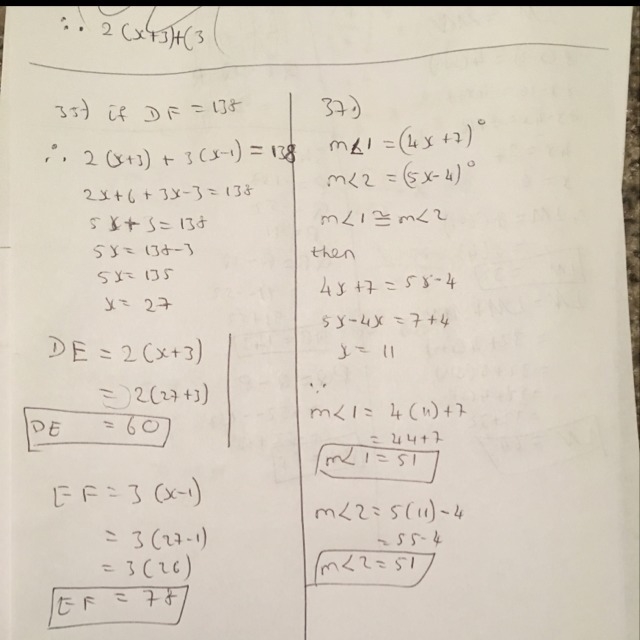 ∴ 2(x+3)+(3
35) if DF = 138
∴ 2(x+3) + 3(x-1) = 138
2x+6+3x-3=138
5x+3=138
5x=138-3
5x=135
x=27
DE = 2(x+3)
= 2(27+3)
DE = 60
EF = 3(x-1)
= 3(27-1)
= 3(26)
EF = 78
37)
m<1 = (4x+7)°
m<2 = (5x-4)°
m<1 ≅ m<2
then
4x+7 = 5x-4
5x-4x = 7+4
x = 11
∵
m<1 = 4(11)+7
= 44+7
m<1 = 51
m<2 = 5(11)-4
= 55-4
m<2 = 51